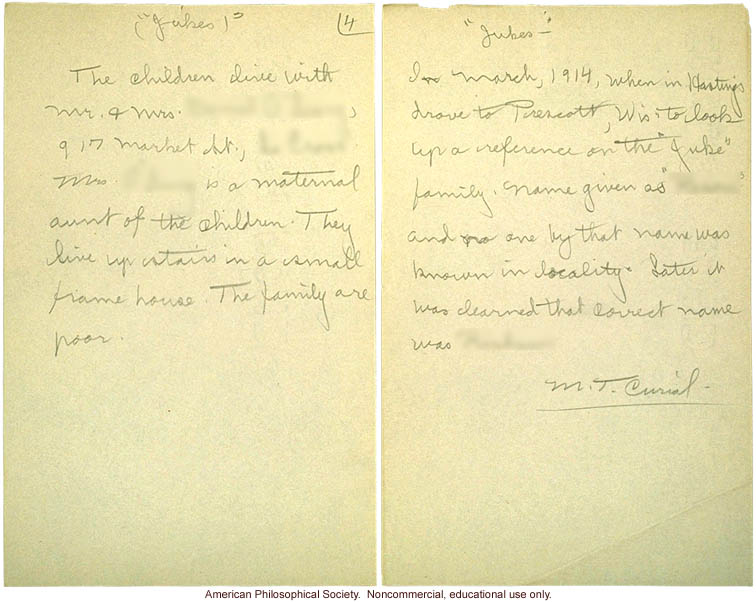 ("Jukes")
4
The children live with
Mr. & Mrs.
917 Market St.,
Mrs. is a maternal
aunt of the children. They
live up stairs in a small
frame house. The family are
poor.
"Jukes—"
In March, 1914, when in Hastings
drove to Prescott, Wis. to look
up a reference on the "Juke"
family. Name given as
and no one by that name was
known in locality. Later it
was learned that correct name
was
M. T. Curial.
American Philosophical Society. Noncommercial, educational use only.